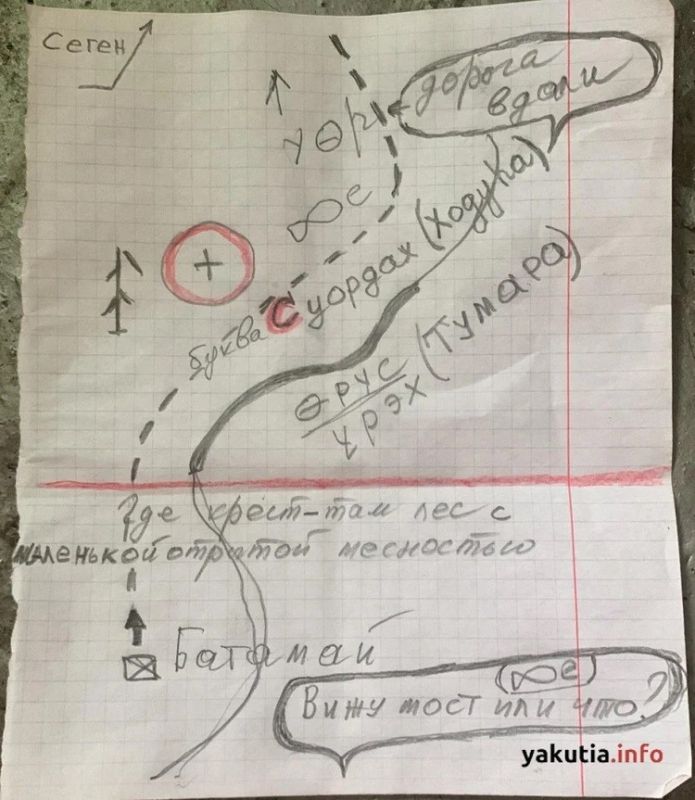 Сеген
дорога
вдали
үөр
∞е
+
буква С уордах (ходука)
Өрүс
үрэх (Тумара)
Где крест-там лес с
маленькой открытой месностью
Батамай
(∞е)
Вижу мост или что?
yakutia.info